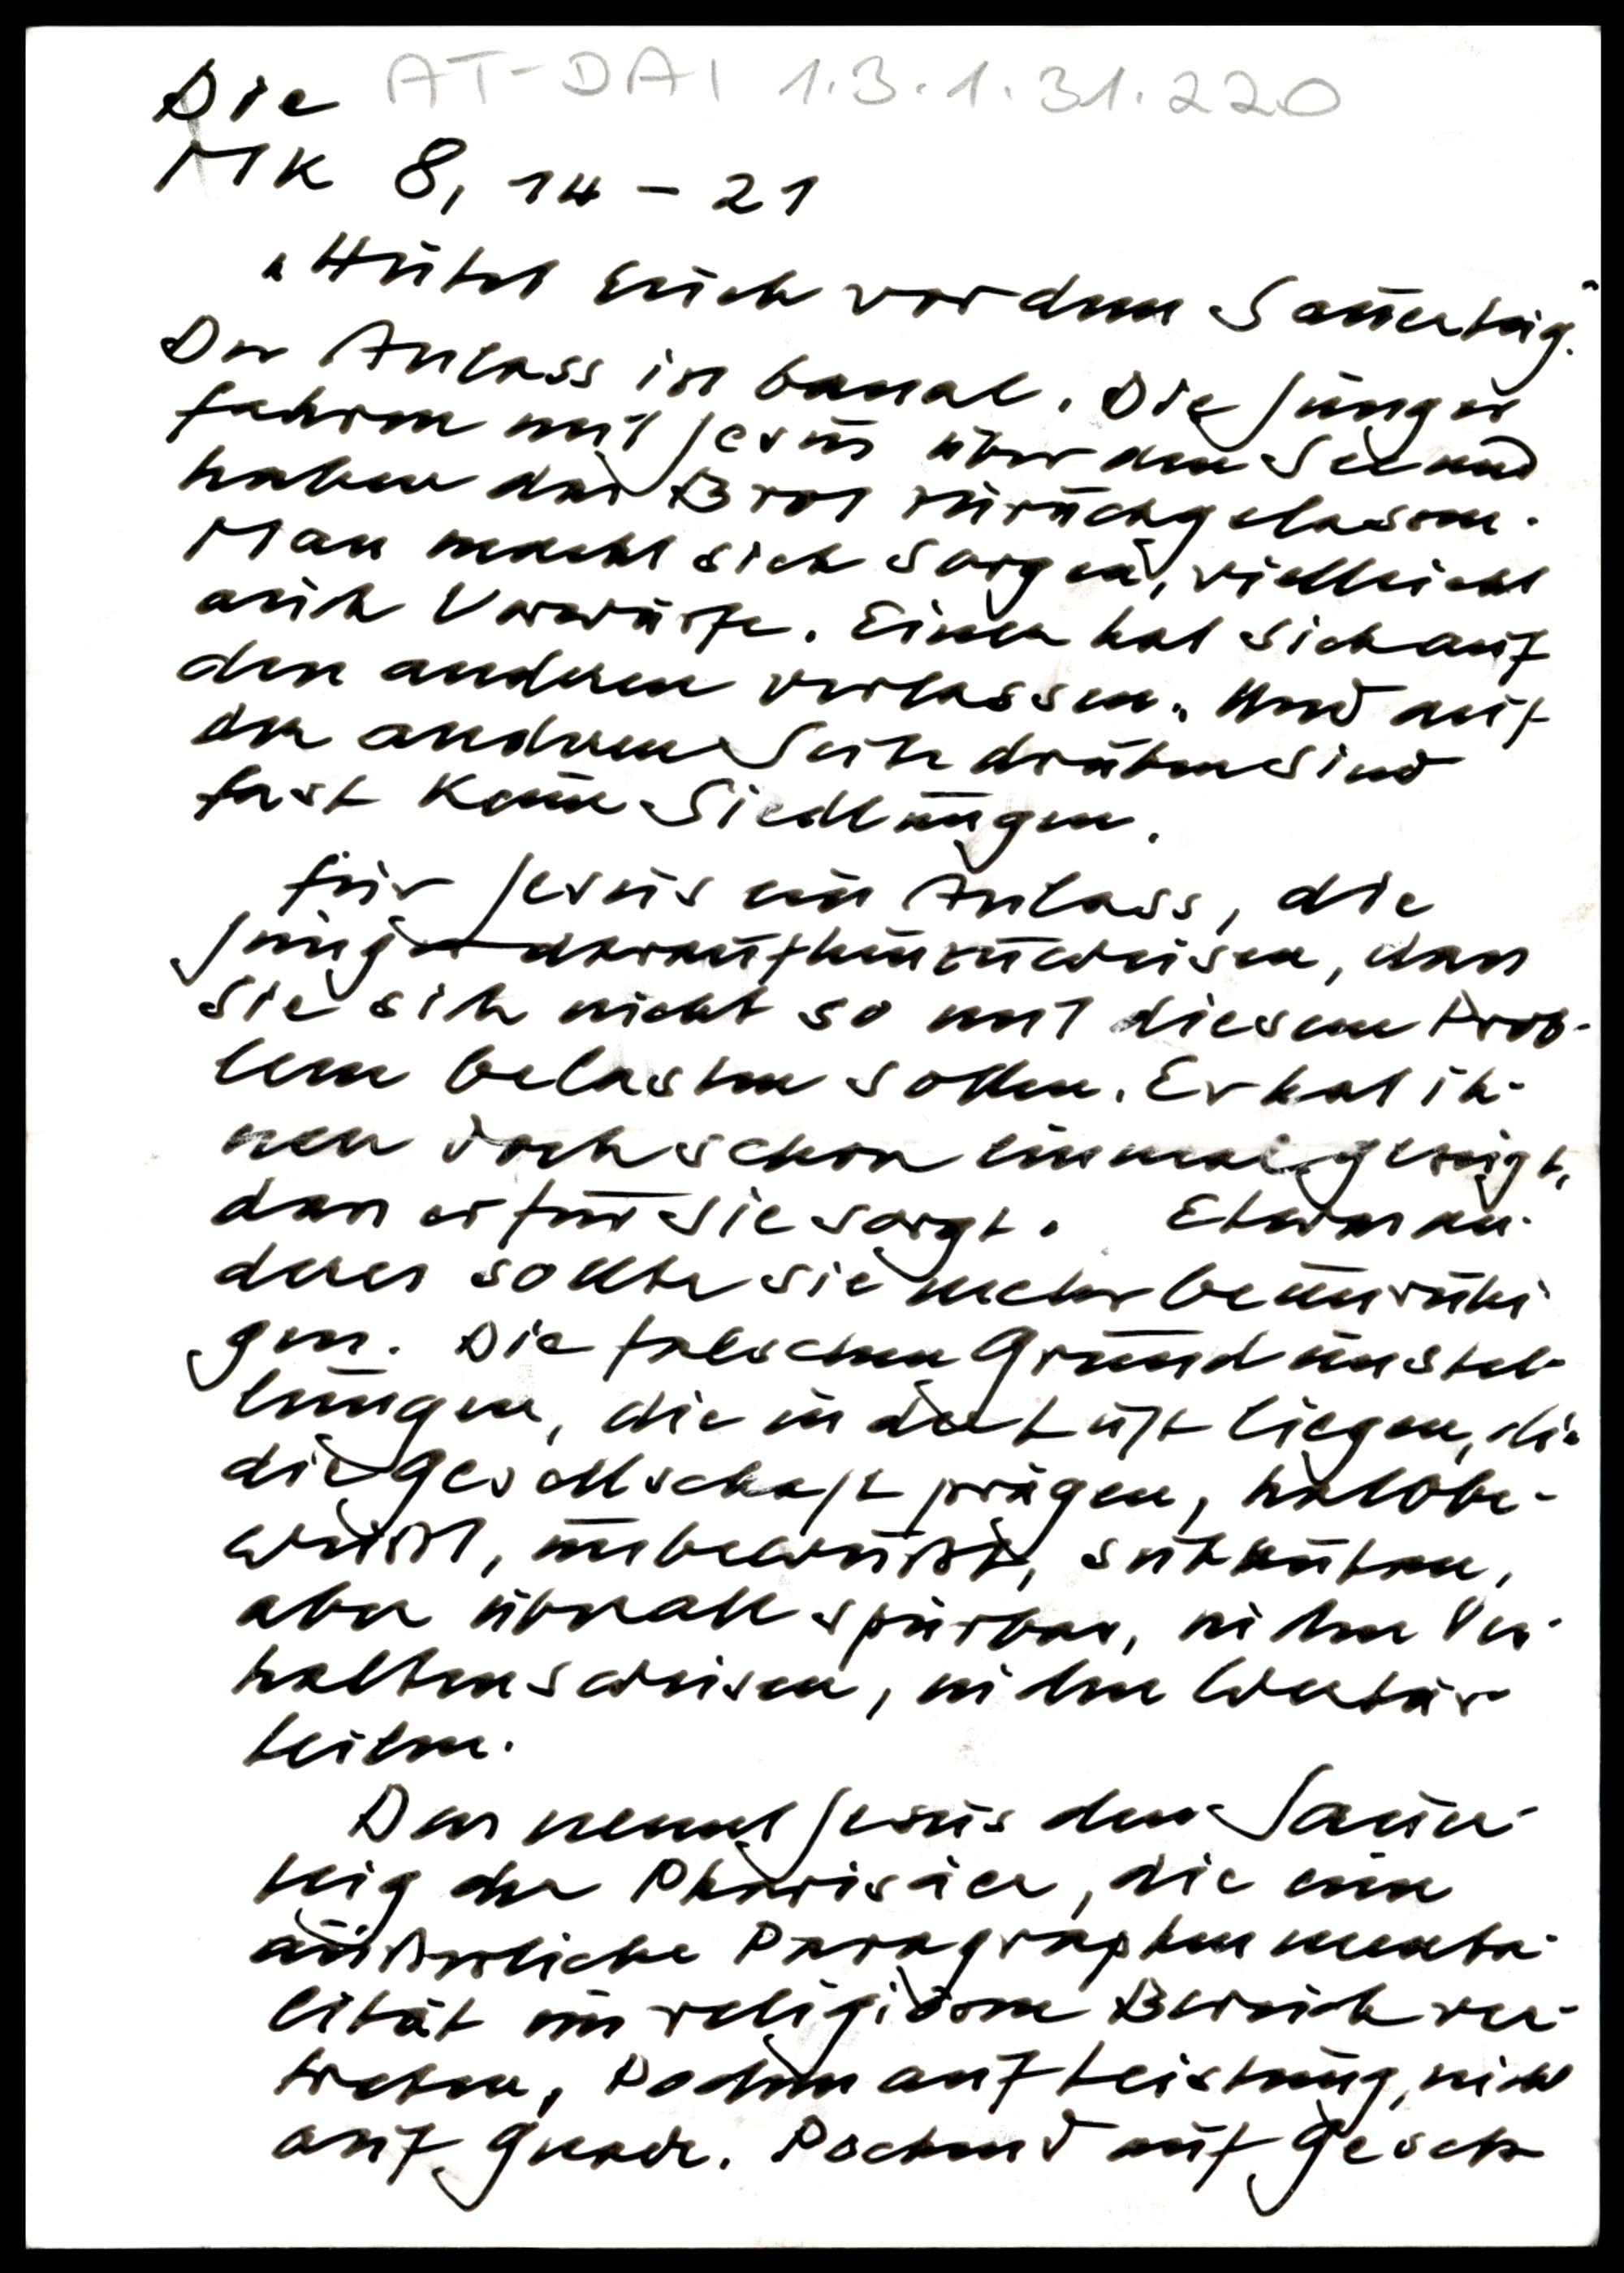 Die AT-DAI 1.3.1.31.220
MK 8, 14 - 21
"Hütet Euch vor dem Sauerteig."
Der Anlass ist banal. Die Jünger
fahren mit Jesus über den See und
haben das Brot zurückgelassen.
Man macht sich Sorgen, vielleicht
auch Vorwürfe. Einer hat sich auf
den anderen verlassen. Und auf
der anderen Seite drüben sind
fast keine Siedlungen.
Für Jesus ein Anlass, die
Jünger darauf hinzuweisen, dass
sie sich nicht so mit diesem Prob-
lem belasten sollen. Er hat ih-
nen doch schon einmal gezeigt,
dass er für sie sorgt. Etwas an-
deres sollte sie mehr beunruhi
gen. Die falschen Grundeinstel-
lungen, die in der Luft liegen, die
die Gesellschaft prägen, halbbe-
wußt, unbewußt,
aber überall spürbar, in den Ver-
haltensweisen, in den Wertur-
teilen.
Das nennt Jesus den Sauer-
teig der Pharisäer, die eine
äußerliche Paragraphenmenta-
lität im religiösen Bereich ver-
treten, Pochen auf Leistung, nicht
auf Gnade. Pochend auf Gesetz